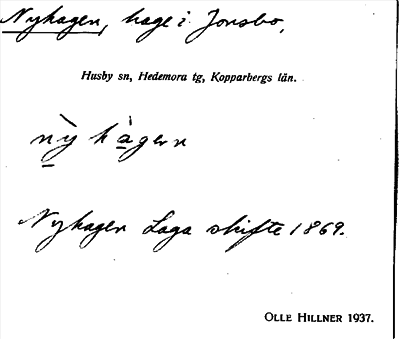 Nyhagen, hage i Jonsbo,
Husby sn, Hedemora tg, Kopparbergs län.
n̠ỳ̠ hà̠gern
Nyhagen Laga skifte 1869.
OLLE HILLNER 1937.